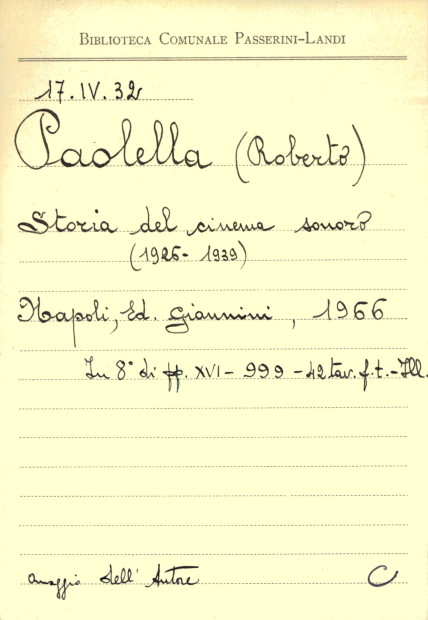 BIBLIOTECA COMUNALE PASSERINI-LANDI
17.IV.32
Paolella (Roberto)
Storia del cinema sonoro
(1926-1939)
Napoli, Ed. Giannini, 1966
In 8° di pp. XVI-999-42 tav. f.t.-Ill.
omaggio dell'Autore C